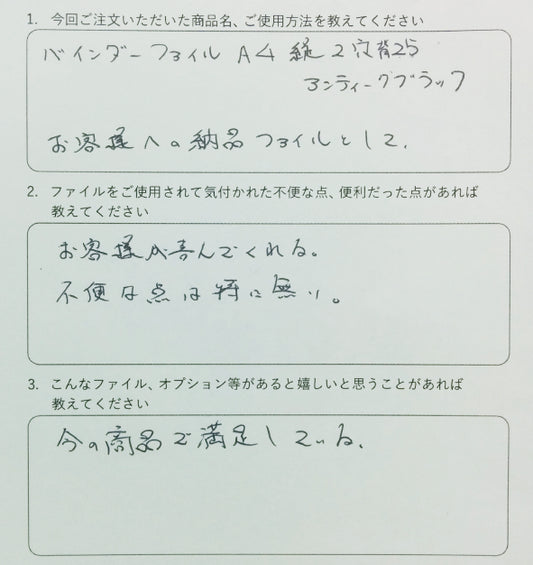 1. 今回ご注文いただいた商品名、ご使用方法を教えてください
バインダーファイル A4 縦 2穴 背25
アンティークブラック
お客様への納品ファイルとして.
2. ファイルをご使用されて気付かれた不便な点、便利だった点があれば
教えてください
お客様が喜んでくれる。
不便な点は特に無い。
3. こんなファイル、オプション等があると嬉しいと思うことがあれば
教えてください
今の商品で満足している.